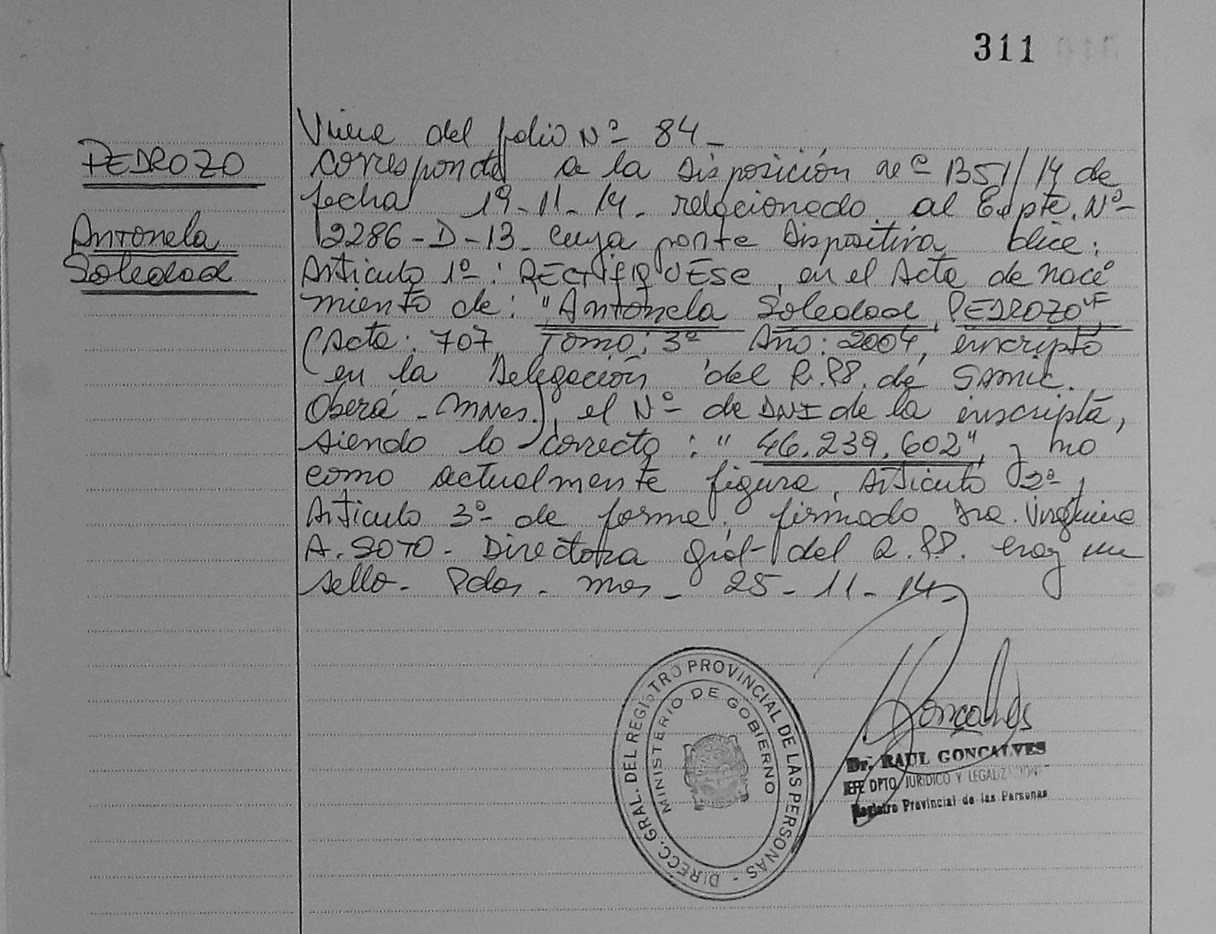 311
PEDROZO
Antonela
Soledad
Viene del folio Nº 84_
corresponde a la Disposición nº 1351/14 de
fecha 19-11-14. relacionado al Expte. Nº-
12286-D-13. cuya parte Dispositiva dice:
Artículo 1º: RECTIFIQUESE, en el Acta de naci
miento de: "Antonela Soledad PEDROZO"
(Acta: 707 Tomo: 3º Año: 2004, inscripto
en la Delegación del R.PP. de SAMIC.
Oberá - Mnes.), el Nº de DNI de la inscripta,
siendo lo correcto: "46.239.602", y no
como actualmente figura. Artículo 2º y
Artículo 3º de forma. firmado Dra.
A. SOTO - Directora gral- del R.PP. Hay un
sello- Pdas. Mnes_ 25-11-14_
DIRECC. GRAL. DEL REGISTRO PROVINCIAL DE LAS PERSONAS -
MINISTERIO DE GOBIERNO
Goncalves
Dr. RAUL GONCALVES
JEFE DPTO. JURIDICO Y LEGALIZACIONES
Registro Provincial de las Personas